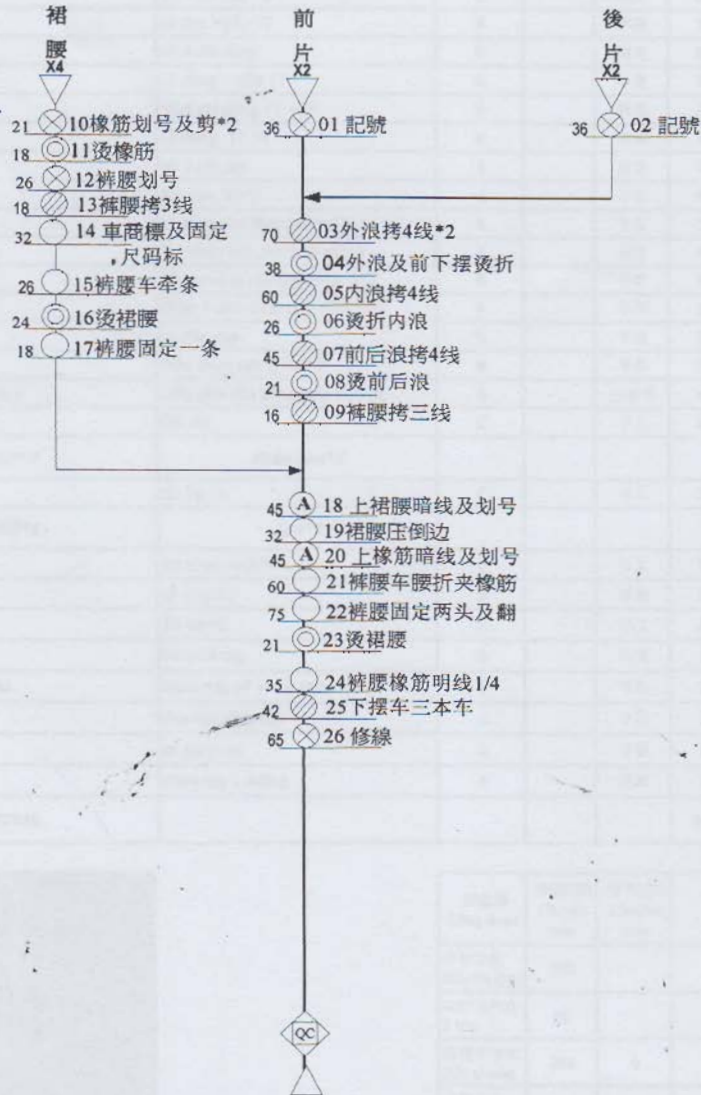 裙腰
X4
21 10橡筋划号及剪*2
18 11烫橡筋
26 12裤腰划号
18 13裤腰拷3线
32 14 車商標及固定
,尺码标
26 15裤腰车牵条
24 16烫裙腰
18 17裤腰固定一条
前片
X2
36 01 記號
後片
X2
36 02 記號
70 03外浪拷4线*2
38 04外浪及前下摆烫折
60 05内浪拷4线
26 06烫折内浪
45 07前后浪拷4线
21 08烫前后浪
16 09裤腰拷三线
45 A 18 上裙腰暗线及划号
32 19裙腰压倒边
45 A 20 上橡筋暗线及划号
60 21裤腰车腰折夹橡筋
75 22裤腰固定两头及翻
21 23烫裙腰
35 24裤腰橡筋明线1/4
42 25下摆车三本车
65 26 修線
QC